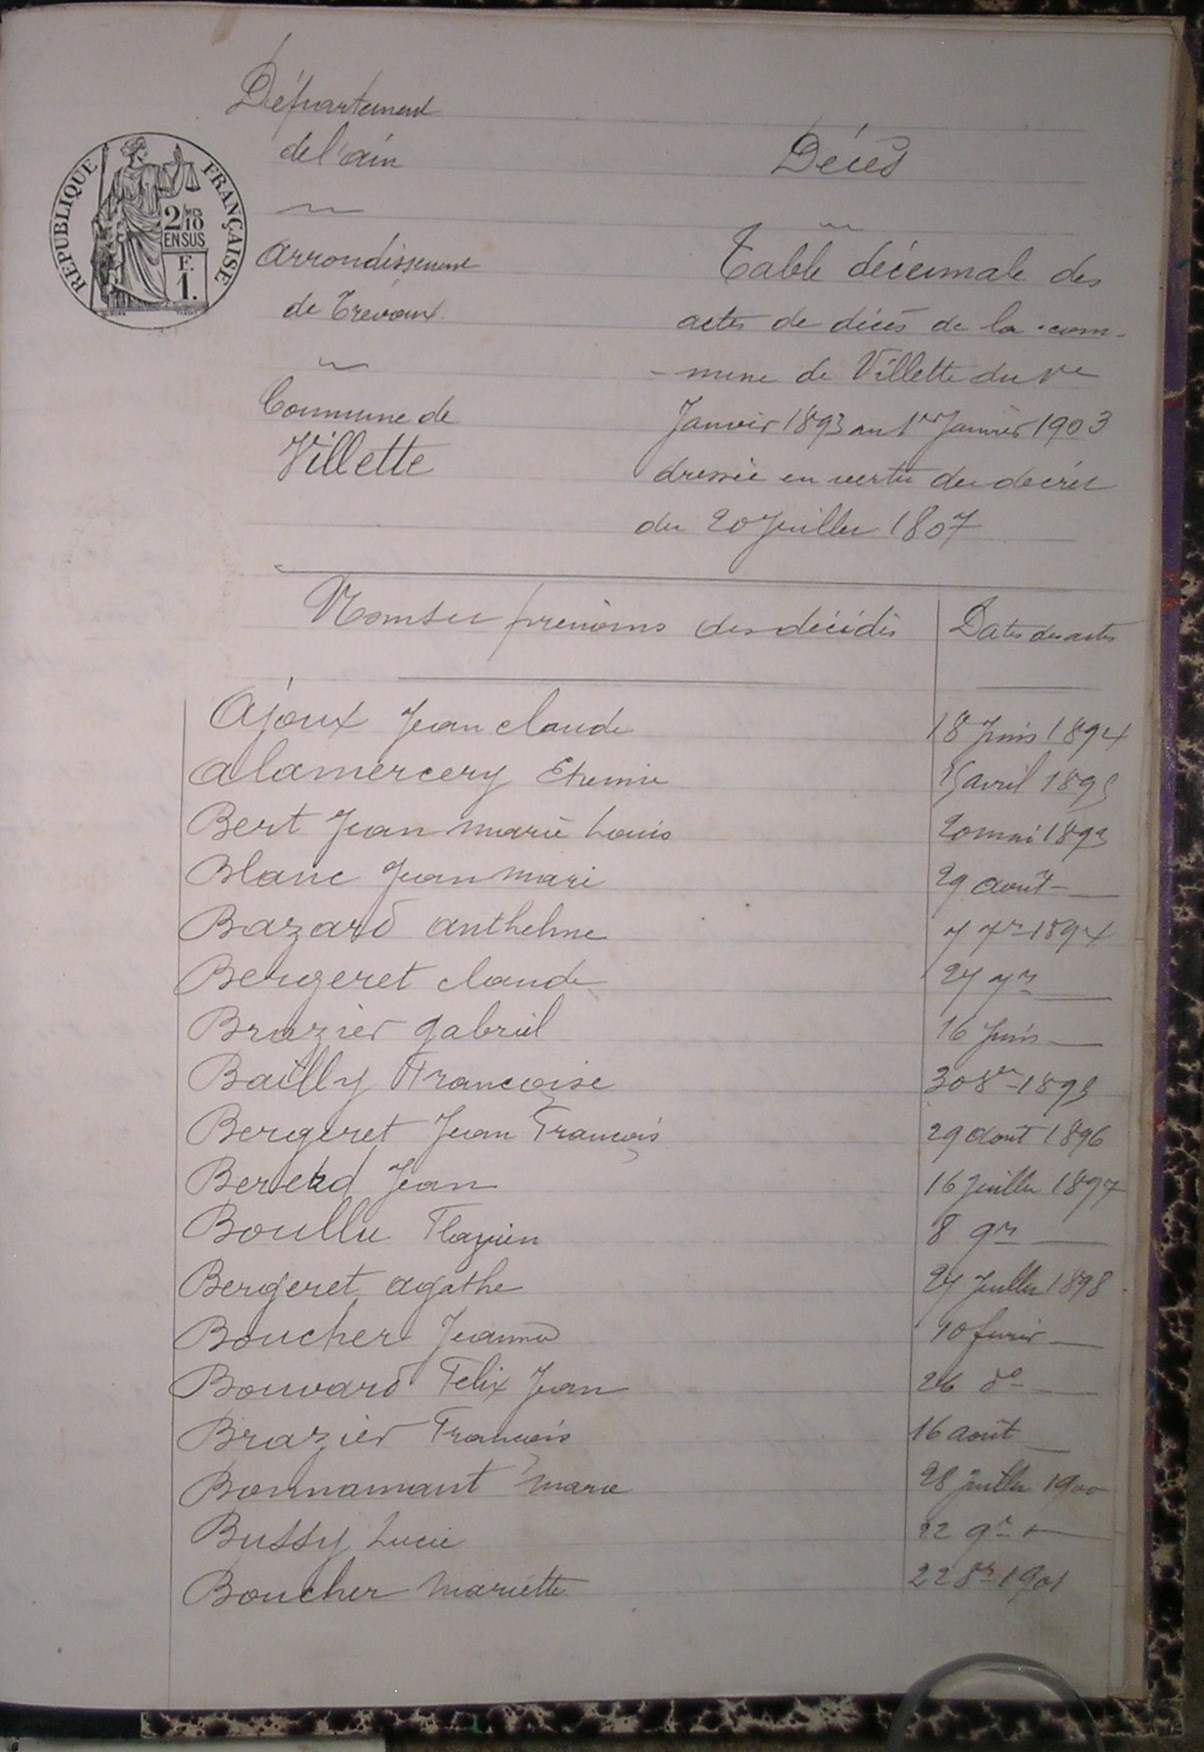 Département
de l'ain
Décès
RÉPUBLIQUE FRANÇAISE
2/10 MES
EN SUS
F.
1.
arrondissement
de Trévoux
Commune de
Villette
Table décennale des
actes de décès de la com-
-mune de Villette du 1er
Janvier 1893 au 1er Janvier 1903
dressée en vertu du décret
du 20 Juillet 1807
Noms et prénoms des décédés | Dates des actes
Ajoux Jean claude 18 Juin 1894
alamercery Etienne 15 avril 1895
Bert Jean marie Louis 20 mai 1893
Blanc Jean marie 29 août —
Bazard anthelme 7 7re 1894
Bergeret claude 27 7re —
Brazier gabriel 16 Juin —
Bailly Francoise 30 8re 1895
Bergeret Jean François 29 aout 1896
Jean 16 Juillet 1897
Boullu Flavien 8 9re —
Bergeret agathe 27 Juillet 1898
Boucher Jeanne 10 fevrier —
Bouvard Felix Jean 26 do —
Brazier François 16 août —
Bonnamant marie 28 Juillet 1900
Bussy Lucie 22 9re —
Boucher Mariette 22 8re 1901